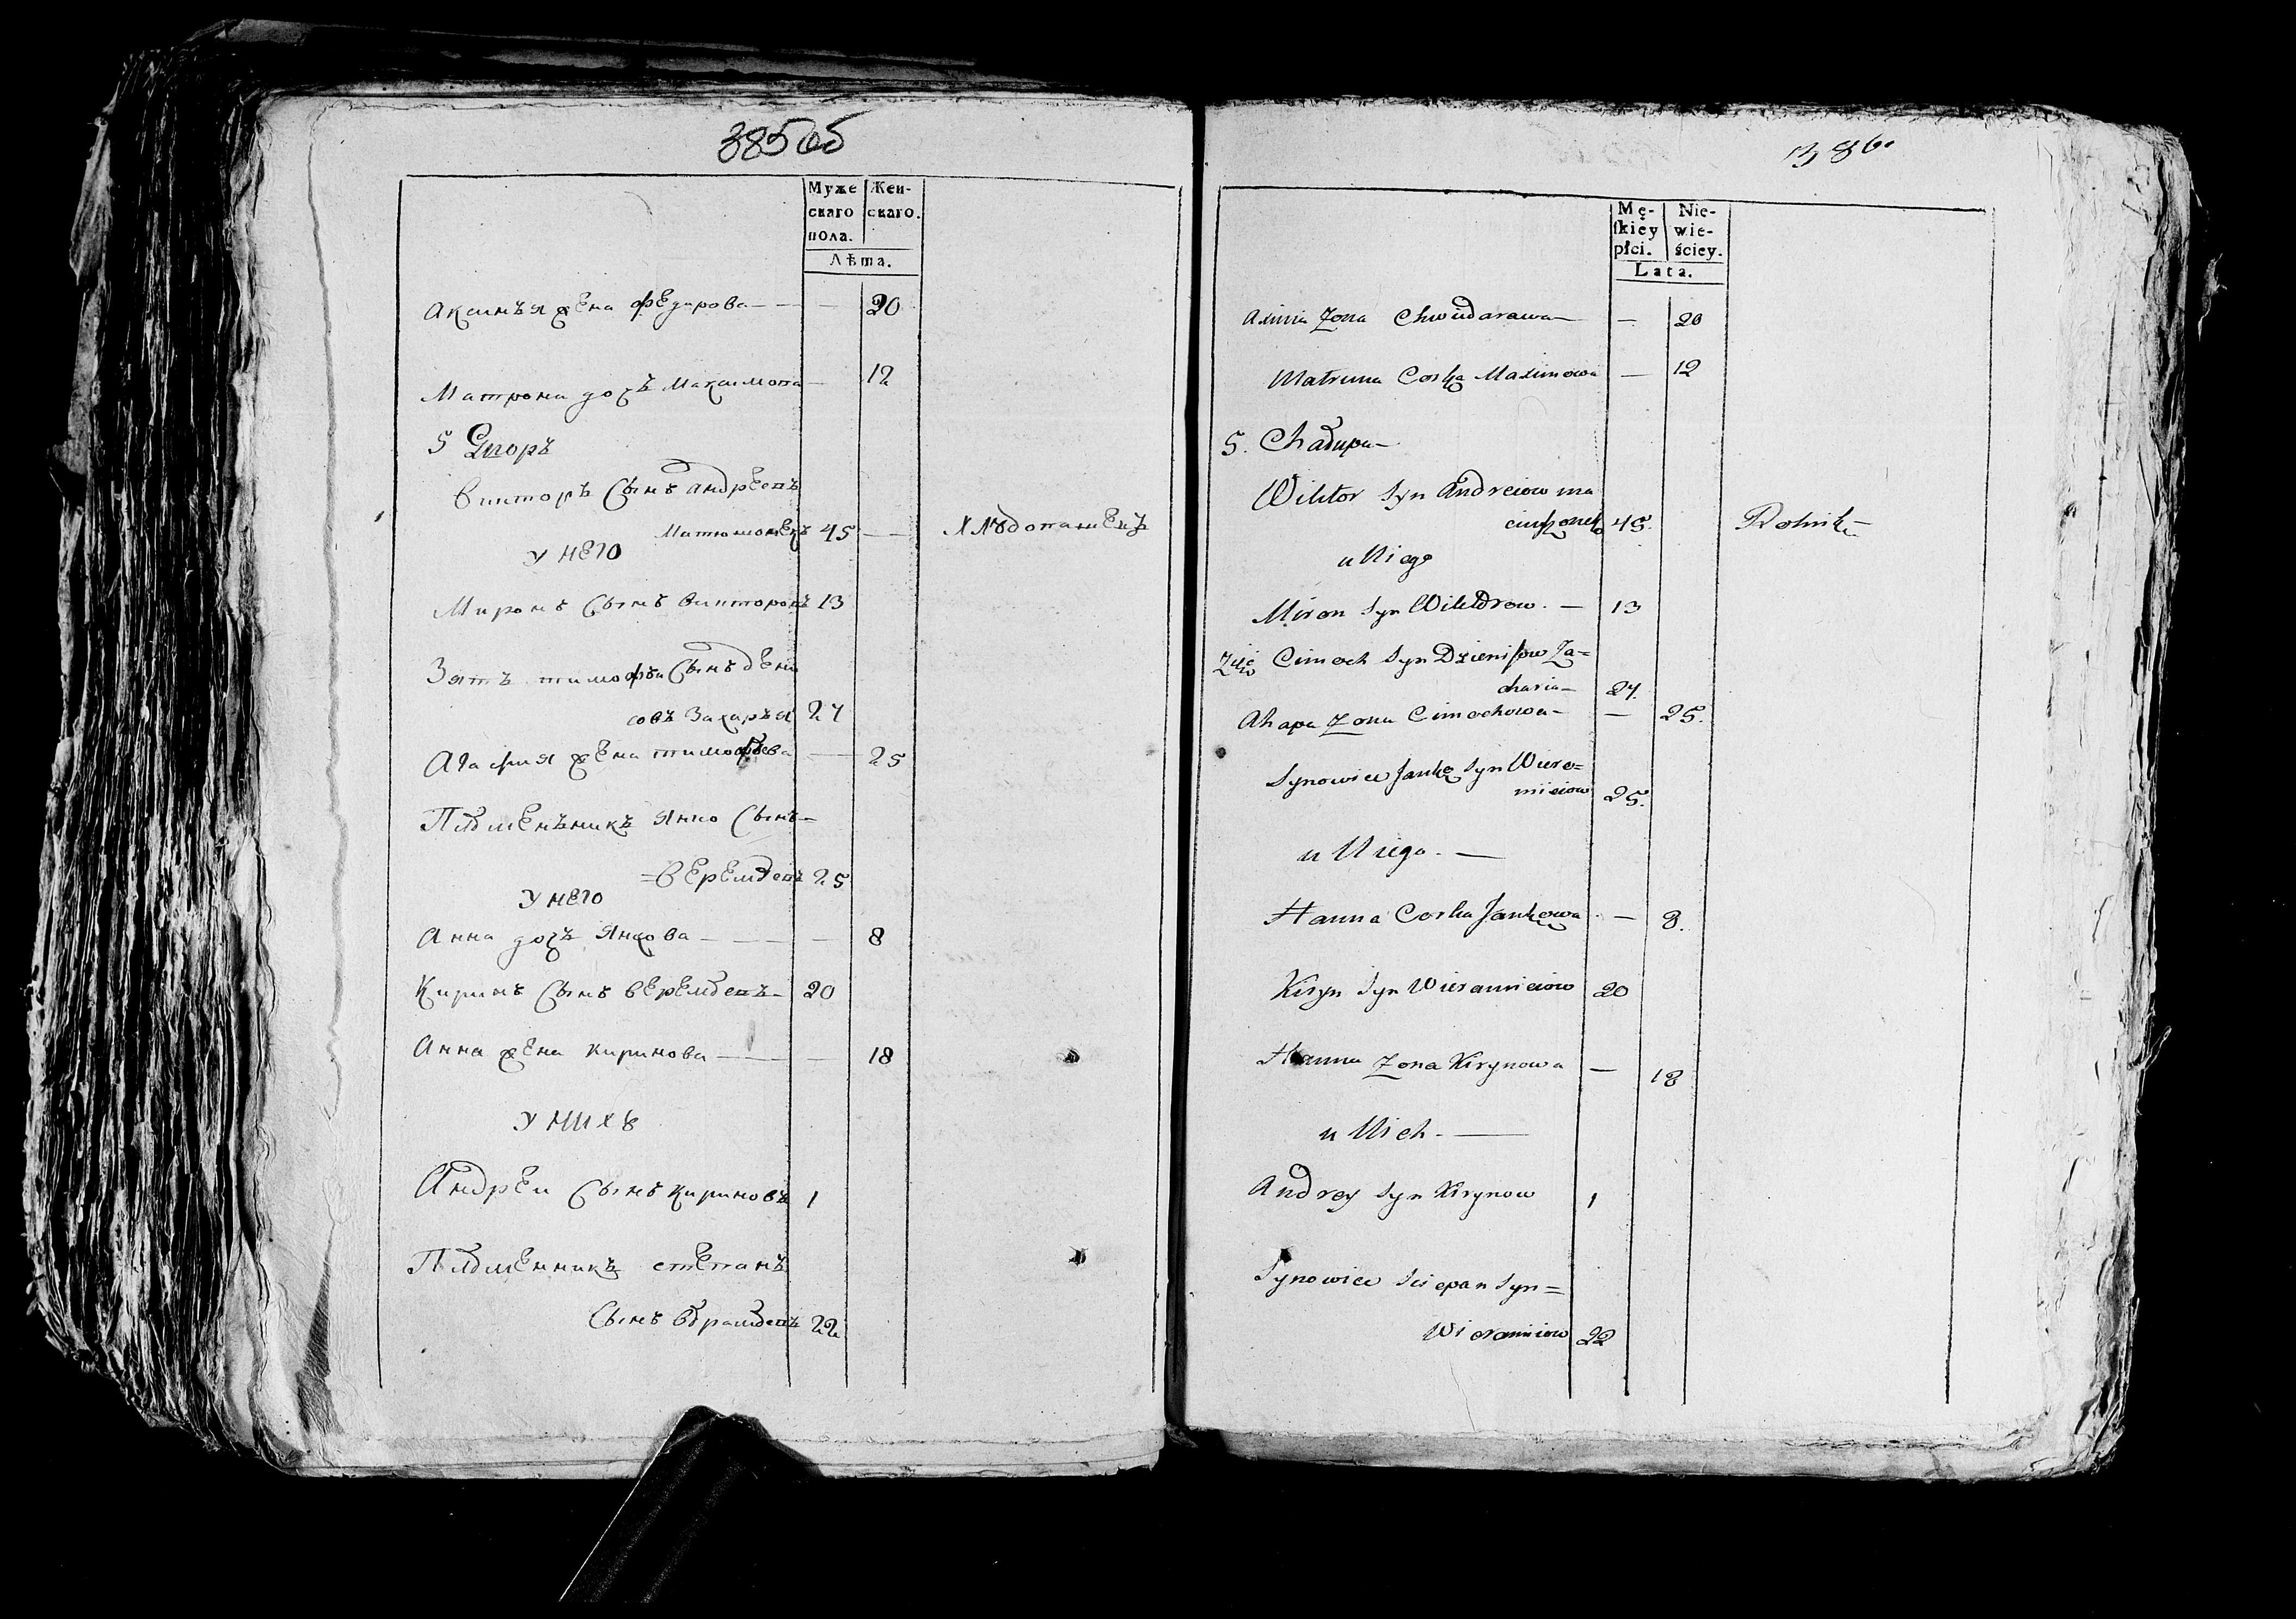 385 об
Муже Жен-
скаго скаго.
пола.
Лѣта.
Аксинъя жена Федарова — — — 20
Матрона дочъ Максимова — 12
5 Дворъ
Викторъ сынъ андреевъ
Матюшонекъ 45 — хлѣбопашецъ
у него
Миронъ сынъ викторовъ 13
Зятъ тимофѣи сынъ дени
совъ Захаръя 27
Агафия жена тимофѣева — 25
Плѣменъникъ янко сынъ =
= вереmѣевъ 25
у него
Анна дочъ янкова — — — — 8
Киринъ сынъ веремѣевъ — 20
Анна жена киринова — — 18
у нихъ
Андреи сынъ кириновъ 1
Плѣменникъ степанъ
сынъ вѣрамѣевъ 22
386.
Mę- Nie-
ſkiey wie-
płci. ściey.
Lata.
Axinia Żona Chwiedarawa — — 20
Matruna Corka Maximowa — 12
5. Chałupa —
Wiktor Syn Andreiow ma
ciuszonek 45. Rolnik —
u Niego
Miron Syn Wiktorow. — 13
Zięć Cimoch Syn Dzienisow Za=
charia — 27.
Ahapa Żona Cimochowa — — 25.
Synowiec Janko Syn Wiere=
mieiow 25.
u Niego. —
Hanna Corka Jankowa. — 8.
Kiryn Syn Wieramieiow 20
Hanna Żona Kirynowa — 18
u Nich. —
Andrey Syn Kirynow 1
Synowiec Sciepan Syn =
Wieramieiow 22